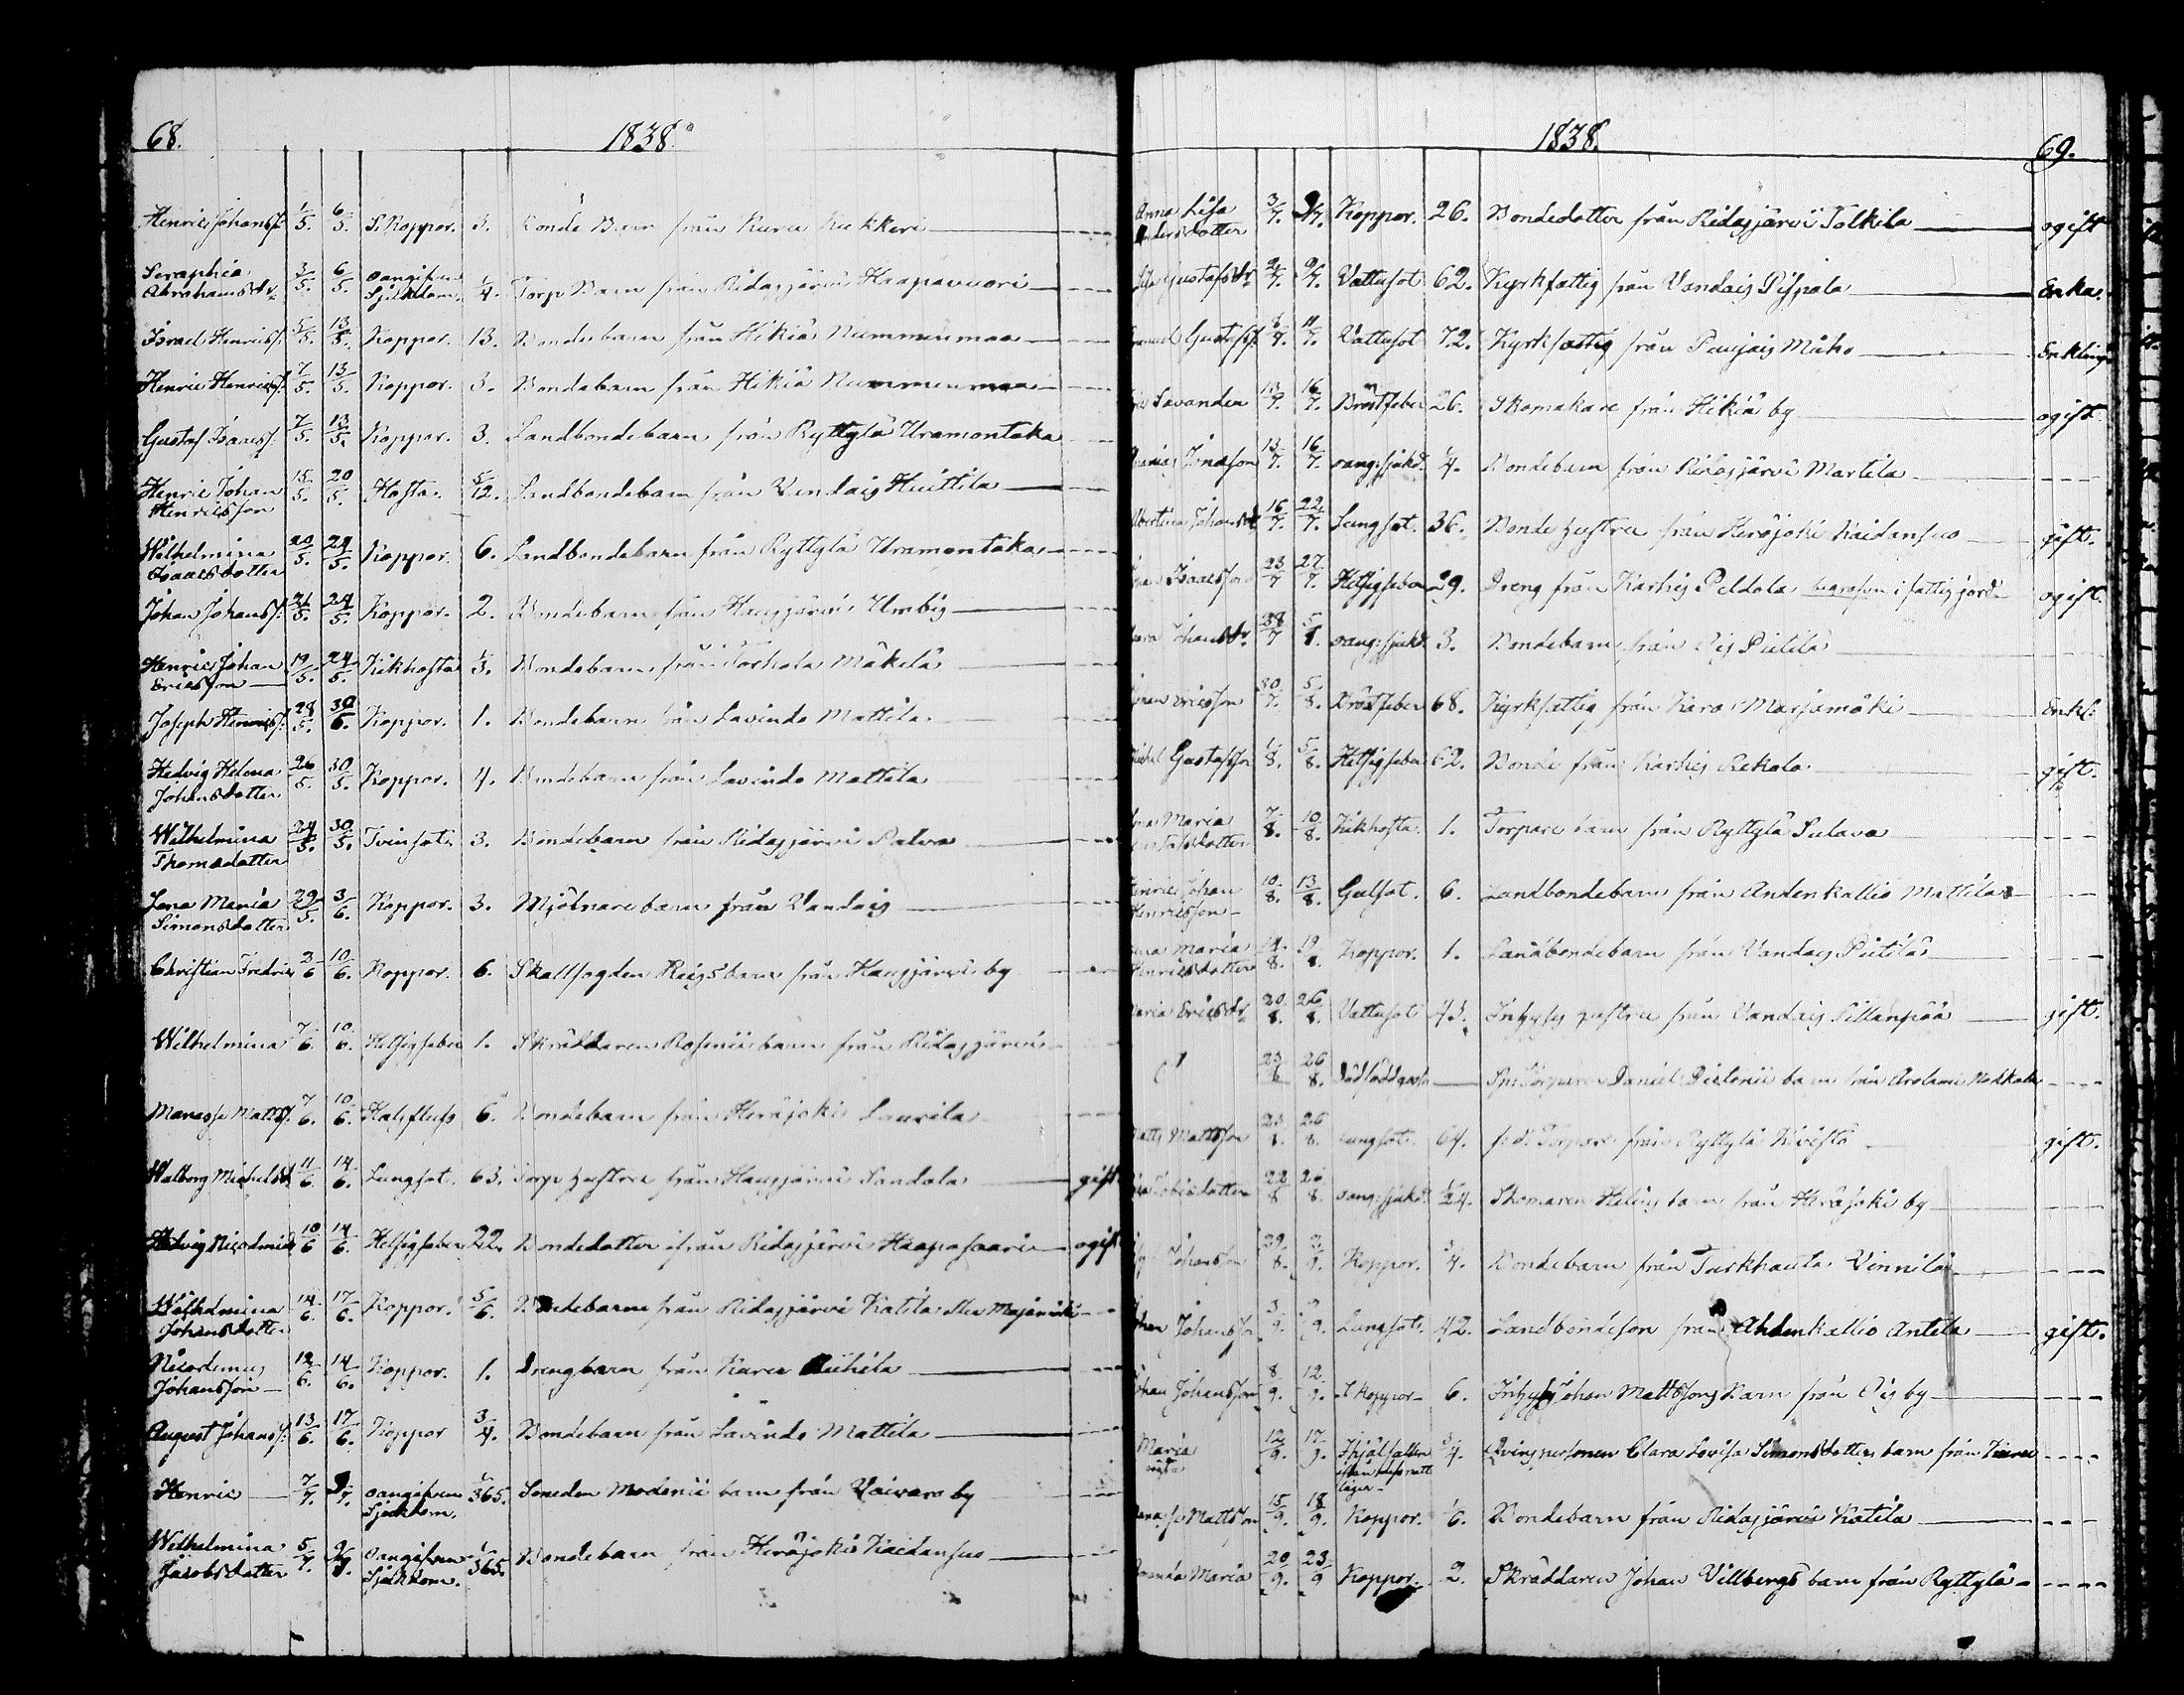 68. 1838.
Henric Johanss: 1/5. 6/5. S. Koppor. 3. Bonde Barn från Karea Kukkeri
Seraphia Abrahamsdr. 3/5. 6/5. oangifven Sjukdom. 1/4. Torp Barn från Ridasjärvi Haapavuori
Israel Henricss: 5/5. 13/5. Koppor. 13. Bondebarn från Hikiä Nummenmaa
Henric Henricss: 7/5. 13/5. Koppor. 3. Bondebarn från Hikiä Nummenmaa
Gustaf Isaacss: 7/5. 13/5. Koppor. 3. Landbondebarn från Ryttylä Uramontaka
Henric Johan Henricsson 15/5. 20/5. Hosta. 5/12. Landbondebarn från Vandais Huittila
Wilhelmina Isaacsdotter 20/5. 24/5. Koppor. 6. Landbondebarn från Ryttylä Uramontaka
Johan Johanss: 21/5. 24/5. Koppor. 2. Bondebarn från Hausjärvi Umbis
Henric Johan Ericsson 19/5. 24/5. Kikhosta 1/3. Bondebarn från Torhola Mäkelä
Joseph Henricss: 28/5. 30/6. Koppor. 1. Bondebarn från Lavindo Mattila
Hedvig Helena Johansdotter 26/5. 30/5. Koppor. 4. Bondebarn från Lavindo Mattila
Wilhelmina Thomasdotter 24/5. 30/5. Tvinsot. 3. Bondebarn från Ridasjärvi Palva
Lena Maria Simonsdotter 29/5. 3/6. Koppor. 3. Mjölnare barn från Vandais
Christian Fredric 2/6 10/6. Koppor. 6. Skallfogden Reigs barn från Hausjärvi by
Wilhelmina 7/6. 10/6. Hetsigfeber 1. Skräddaren Rosenii barn från Ridasjärvi
Manasse Mattss: 7/6. 10/6. Halsfluss 6. Bondebarn från Heräjoki Laurila
Walborg Michelsd. 11/6. 14/6. Lungsot. 63. Torp hustru från Hausjärvi Sandola gift
Hedvig Nicodemid. 10/6 14/6. Hetsigfeber 22. Bondedotter ifrån Ridasjärvi Haaposaari ogift
Wilhelmina Johansdotter 14/6. 17/6. Koppor. 5/6. Bondebarn från Ridasjärvi Katila
Nicodemus Johansson 12/6. 14/6. Koppor. 1. Drengbarn från Karea
August Johanss: 13/6. 17/6. Koppor 3/4. Bondebarn från Lavindo Mattila
Henric 7/7. 9/7. oangifven Sjukdom. 1/365. Smeden Modenii barn från Vaivaro by
Wilhelmina Jacobsdotter 5/7. 9/7. oangifven Sjukdom. 1/365. Bondebarn från Heräjoki Kaidansuo
1838. 69.
Anna Lisa Andersdotter 3/7. 9/7. Koppor. 26. Bondedotter från Ridasjärvi Tolkila ogift
Gustafsdr. 2/7. 9/7. Vattusot 62. Kyrkfattig från Vandais Pispala Enka.
Gustafss: 8/7. 11/7. Vattusot 72. Kyrkfattig från Puujais Mäko Enkling
Savander 13/7. 16/7. Bröstfeber 26. Skomakare från Hikiä by ogift.
Jonasson 13/7. 16/7. oang: sjukd. 1/4. Bondebarn från Ridasjärvi Martila
Albertina Johansd. 16/7. 22/7. Lungsot. 36. Bonde hustru från Heräjoki Kaidansuo gift.
Isaacsson 23/7 27/7. Hetsigfeber 29. Dreng från Karhis Peldola begrafven i fattig jord ogift.
Johansdr. 28/7 5/8. oang: sjukd. 3. Bondebarn från Ois Pietilä
Johan Ericsson 30/7. 5/8. Bröstfeber 68. Kyrkfattig från Karea Marjamäki Enkl:
Michel Gustafsson 1/8. 5/8. Hetsigfeber 62. Bonde från Karhis Rekola gift.
Maria 7/8. 10/8. Kikhosta. 1. Torpare barn från Ryttylä Sulava
Henric Johan Henricsson 10/8. 13/8. Gulsot. 6. Landbondebarn från Ahdenkallio Mattila
Maria Henricsdotter 14/8. 19/8. Koppor. 1. Landbondebarn från Vandais Pietilä
Maria Ericsdr. 20/8. 26/8. Vattusot 43. Inhyses hustru från Vandais Pillanpää gift.
23/8 26/8. Dödfödd Torparen Daniel barn från
Matts Mattsson 23/8. 26/8. Lungsot. 64. f.d. Torpare från Ryttylä Kivistö gift.
Tobiedotter 22/8 26/8. oang: sjukd. 1/24. Skomaren Helins barn från Heräjoki by
Johansson 29/8. 2/9. Koppor. 3/4. Bondebarn från Turkhauta Vinnilä
Johan Johansson 3/9. 9/9. Lungsot. 42. Landbondeson från Ahdenkallio Antila gift.
Johan Johansson 8/9. 12/9. S Koppor 6. Inhyses Johan Mattssons Barn från Ois by
Maria 12/9. 17/9. Ihjälfallen 3/4. Qvinspersonen Clara Lovisa Simonsdotters barn från Karea
Manasse Mattsson 15/9. 18/9. Koppor. 1/6. Bondebarn från Ridasjärvi Katila
Amanda Maria 20/9. 23/9 Koppor. 2. Skräddaren Johan Villbergs barn från Ryttylä